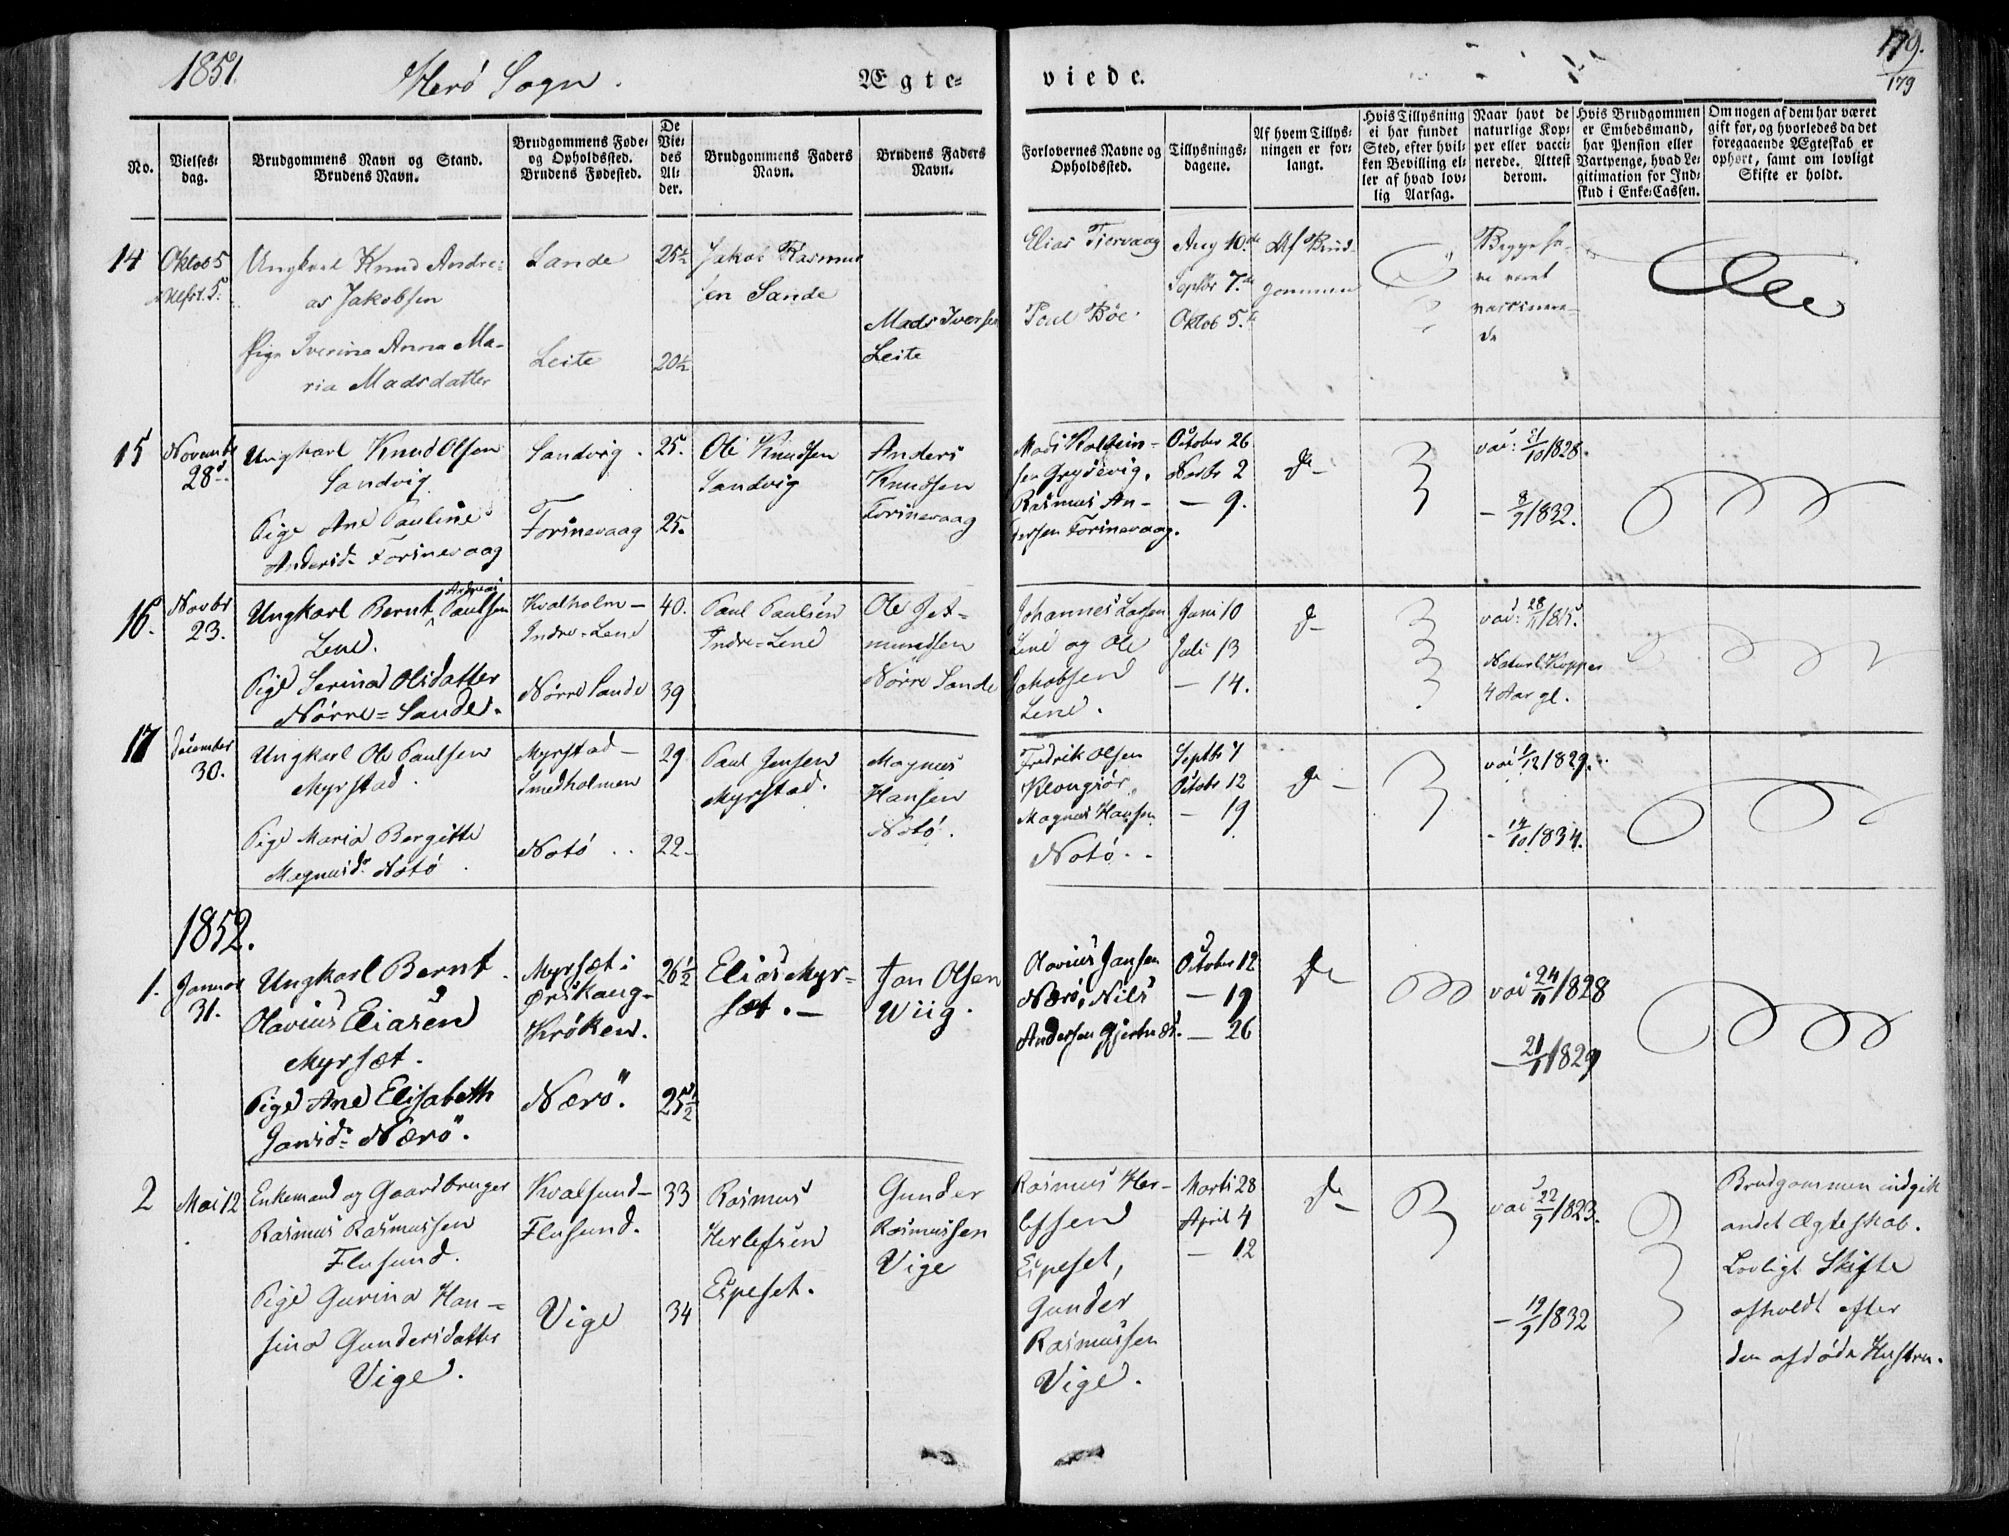 1851.
Herö Sogn.
Ægte-
viede.
179.
179
No.
Vielses-
dag.
Brudgommens Navn og Stand.
Brudens Navn.
Brudgommens Føde-
og Opholdssted.
Brudens Fødested.
De
Vie-
des
Al-
der.
Brudgommens Faders
Navn.
Brudens Faders
Navn.
Forlovernes Navne og
Opholdssted.
Tillysnings-
dagene.
Af hvem Tillys-
ningen er for-
langt.
Hvis Tillysning
ei har fundet
Sted, efter hvil-
ken Bevilling el-
ler af hvad lov-
lig Aarsag.
Naar havt de
naturlige Kop-
per eller vacci-
nerede. Attest
derom.
Hvis Brudgommen
er Embedsmand,
har Pension eller
Vartpenge, hvad Le-
gitimation for Ind-
skud i Enke-Cassen.
Om nogen af dem har været
gift før, og hvorledes da det
foregaaende Ægteskab er
ophørt, samt om lovligt
Skifte er holdt.
14
Oktob 5
Ungkarl Knud Andre-
as Jakobsen
Pige Iverina Anna Ma-
ria Madsdatter
Sande
Leite
25½
20½
Jakob Rasmus
sen Sande
Mads Iversen
Leite
Elias Tjervaag
Poul Böe
Aug 10.de
Septbr 7.de
Oktob 5.te
Af Brud-
gommen
Begge ha-
ve været
vaccinere-
de
15
Novembr
28.
Ungkarl Knud Olsen
Sandvig
Pige Ane Pauline
Andersd. Torinevaag
Sandvig.
Torinevaag
25.
25.
Ole Knudsen
Sandvig
Anders
Knudsen
Torinevaag
Rasmus An-
dersen Torinevaag.
October 26
Novbr 2
— 9.
Do
vac: 21/10 1828.
— 8/9 1832.
16.
Novbr
23.
Ungkarl Bernt Andreas Paulsen
Lene.
Pige Serina Olsdatter
Nörre-Sande.
Kvalholm—
Indre-Lene
Nörre Sande
40.
39
Paul Paulsen
Indre-Lene
Ole Jet-
mundsen
Nörre Sande
Johannes Larsen
Lene og Ole
Jakobsen
Lene.
Juni 10
Juli 13
— 14.
Do
Naturl. Kopper
4 Aar gl.
17
December
30.
Ungkarl Ole Paulsen
Myrstad.
Pige Maria Bergitte
Magnusd. Notö
Myrstad—
Smedholmen
Notö
29
22
Paul Jensen
Myrstad.
Magnus
Hansen
Notö.
Fredrik Olsen
Magnus Hansen
Notö.
Septbr 7
Octobr 12
— 19
Do
— 14/10 1834.
1852.
1.
Januar
31.
Ungkarl Bernt
Olavius Eliasen
Myrsæt.
Pige Ane Elisabeth
Jansd. Nærö.
Myrsæt i
Ørskoug-
Kröken.
Nærö.
26½
25½
Elias Myr-
sæt.—
Jan Olsen
Wiig.
Olavius Jansen
Nærö, Nils
Andersen Gjertnæs.
October 12
— 19
— 26
Do
vac 24/11 1828
— 21/11 1829
2
Mai 12
Enkemand og Gaardbruger
Rasmus Rasmussen
Flusund.
Pige Gurina Han-
sina Gundersdatter
Vige.
Kvalsund—
Flusund.
Vige
33
34
Rasmus
Herlefsen
Espeset.
Gunder
Rasmussen
Vige
Rasmus Her-
lefsen
Espeset,
Gunder
Rasmussen
Vige.
Marts 28
April 4
— 12
Do
vac 22/9 1823.
— 19/9 1832
Brudgommen indgik
andet Ægteskab.
Lovligt Skifte
afholdt efter
den afdöde Hustru.